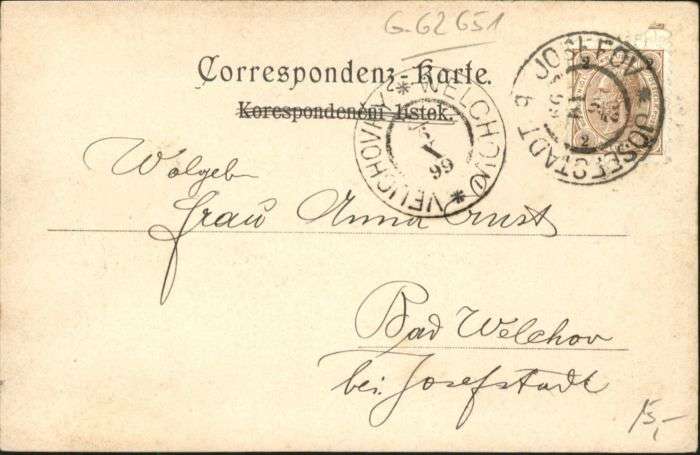 G-62651
Correspondenz-Karte.
Korespondenční lístek.
JOSEFOV * JOSEFSTADT
WELCHOW * VELICHOVKY *
99
Wolgeb
Frau Anna Ernst
Bad Welchov
bei Josefstadt
15,-